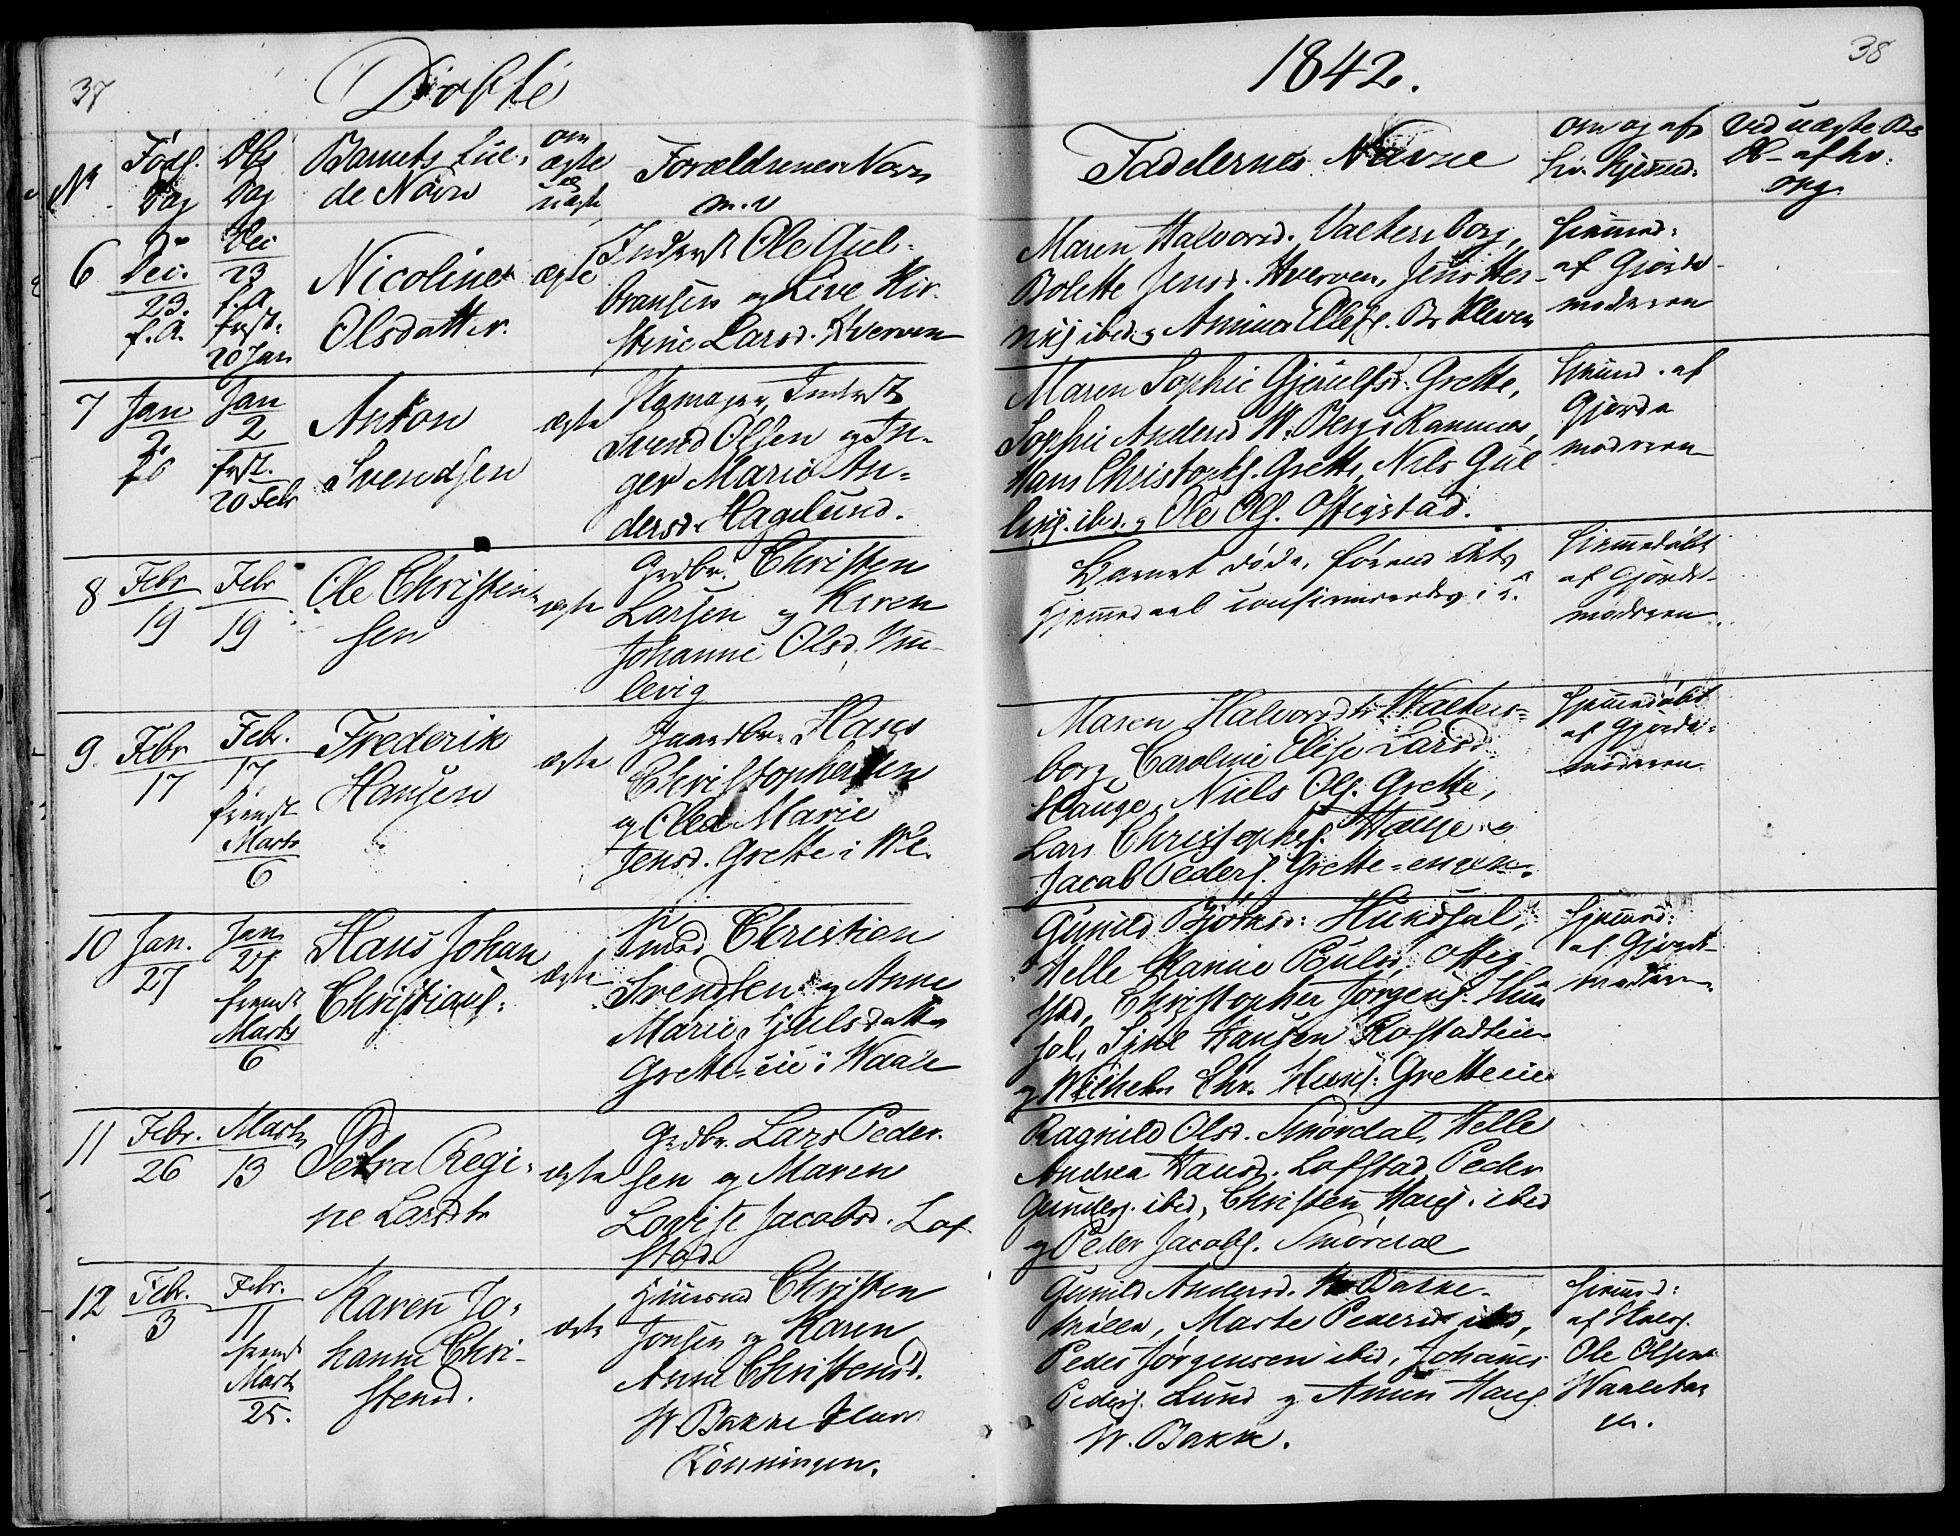 37
Döbte
1842.
38
No
Föds. Dag
Dbs Dag
Barnets fulde Navn
om ægte el. uægte
Forældrenes Navn m.v
Faddernes Navne
om og af hv. hjemmed.
Ved uægte
6
Dec. 23. f.A.
Dec 23 f.A. frst. 20 Jan
Nicoline
Olsdatter.
ægte
Inderst Ole Gul-
bransen og Live Kir-
stine Larsd. Kverven
Maren Halvorsd. Valtersborg,
Bolette Jensd. Kverven, Jens Hen-
Hjemmed:
af Gjorde-
moderen
7
Jan 2.
Jan 2 frst. 20 Febr
Anton
Svendsen
ægte
Inderst
Svend Olsen og In-
ger Marie An-
dersd. Hagelund.
Maren Sophie Gjerulfsd. Grette,
Sophie Andersd. W. Berg Rammes,
Hans Christophs. Grette, Nils Gul
ibd. og Ole Ols. Oftigstad.
Hjemmd. af
Gjorde
moderen
8
Febr 19
Febr 19
Ole Christen-
sen
ægte
Grdbr. Christen
Larsen og Karen
Johanne Olsd.
levig
Barnet döde, förend dets
Hjemmedaab
Hjemmedöbt
af Gjorde-
moderen.
9
Febr 17
Febr. 17 fremst. Marts 6
Frederik
Hansen
ægte
Gaardbr. Hans
Christophersen
og Olea Marie
Jensd. Grette i We.
Maren Halvorsdtr Walters-
borg, Caroline Elise Larsd.
Hauge, Niels Ols. Grette,
Lars Christophers. Hauge og
Jacob Peders. Grette-engen.
Hjemmedöbt
af Gjorde-
moderen
10
Jan. 27
Jan 27 fremst Marts 6
Hans Johan
Christians.
ægte
Smed Christian
Svendsen og Anne
Marie Gjulsdatter
Grette-eie i Waale
Gunild Björnsd: Hundsal,
Helle Karine Poulsd. Oftig-
stad, Christopher Jörgens. Hun
sal, Sjul Hansen Rostadeie
og Wilhelm Chr. Hans: Gretteeie
Hjemmed:
af Gjorde-
moderen.
11
Febr. 26
Marts 13
Petra Regi-
ne Larsdtr
ægte
Grdbr. Lars Peder-
sen og Maren
Lovise Jacobsd. Lof-
stad
Ragnild Olsd. Smördal, Helle
Andrea Hansd. Lofstad, Peder
Gunders. ibid, Christen Hans. ibid
og Peder Jacobs. Smördal
12
Febr. 3
Febr. 11 fremst Marts 25.
Karen Jo-
hanne Chri-
stensd.
ægte
Huusmd Christen
Jonsen og Karen
Anne Christensd.
W Bakke
Rönningen.
Gunild Andersd. W Bakke-
Marte Pedersd ibd,
Peder Jörgensen ibid, Johannes
Peders. Lund og Hans.
W. Bakke.
Hjemmd:
af
Ole Olsen